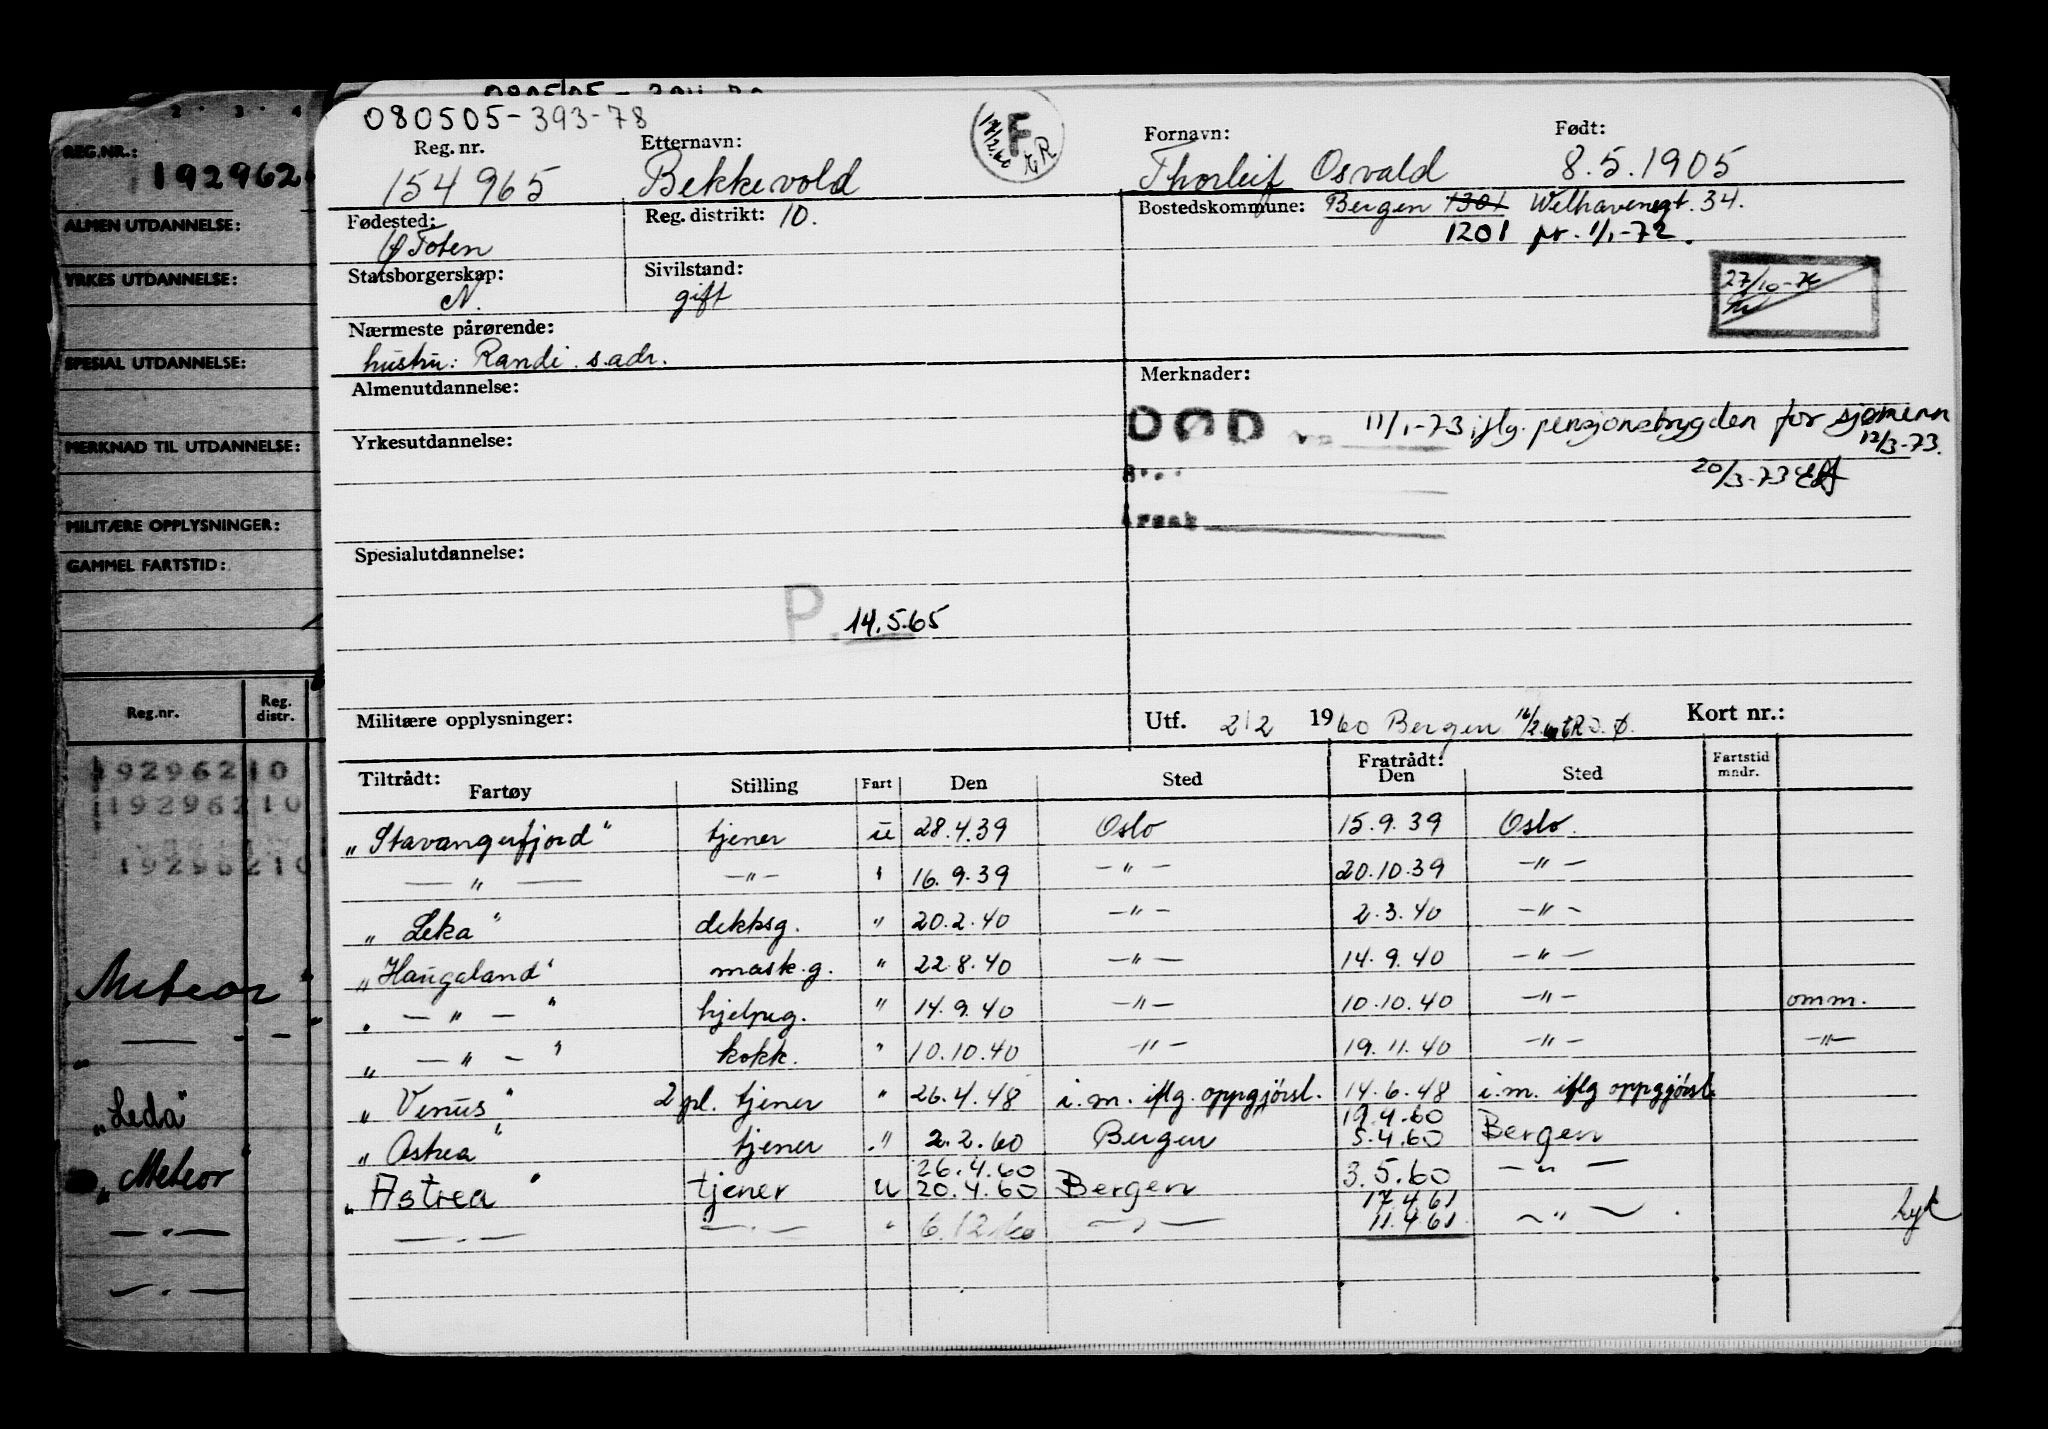 2 3 4
REG.NR.:
192962
ALMEN UTDANNELSE:
YRKES UTDANNELSE:
SPESIAL UTDANNELSE:
MERKNAD TIL UTDANNELSE:
MILITÆRE OPPLYSNINGER:
GAMMEL FARTSTID:
Reg.nr. Reg. distr.
19296210
19296210
19296210
Meteor "
" — - —
"Leda"
"Meteor"
— . —
— . —
080505-393-78
Reg. nr. Etternavn: Fornavn: Født:
154965 Bekkevold Thorleif Osvald 8.5.1905
F
Fødested: Reg. distrikt: 10. Bostedskommune: Bergen 1301 Welhavensgt. 34.
Toten 1201 pr. 1/1-72.
Statsborgerskap: Sivilstand:
N. gift
27/10-
Nærmeste pårørende:
hustru: Randi s.adr.
Almenutdannelse: Merknader:
DØD 11/1-73 iflg. pensjonstrygden for sjømenn
12/3-73.
Yrkesutdannelse:
20/3-73
Årsak
Spesialutdannelse:
P. 14.5.65
Militære opplysninger: Utf. 2/2 1960 Bergen Kort nr.:
Tiltrådt: Fratrådt:
Fartøy Stilling Fart Den Sted Den Sted Fartstid mndr.
"Stavangerfjord" tjener u 28.4.39 Oslo 15.9.39 Oslo.
— " — — " — " 16.9.39 — " — 20.10.39 — " —
"Leka" dekksg. " 20.2.40 — " — 2.3.40 — " —
"Haugaland" mask.g. " 22.8.40 — " — 14.9.40 — " —
" — " — " hjelpeg. " 14.9.40 — " — 10.10.40 — " — omm.
" — " — " kokk. " 10.10.40 — " — 19.11.40 — " — — " —
"Venus" 2 pl. tjener " 26.4.48 i.m. iflg. oppgjørsl. 14.6.48 i.m. iflg oppgjørsl.
19.4.60
"Astrea" tjener " 2.2.60 Bergen 5.4.60 Bergen
26.4.60
"Astrea" tjener u 20.4.60 Bergen 3.5.60 — " —
17.4.61
— " — — " — " 6.12.60 — " — 11.4.61 — " —